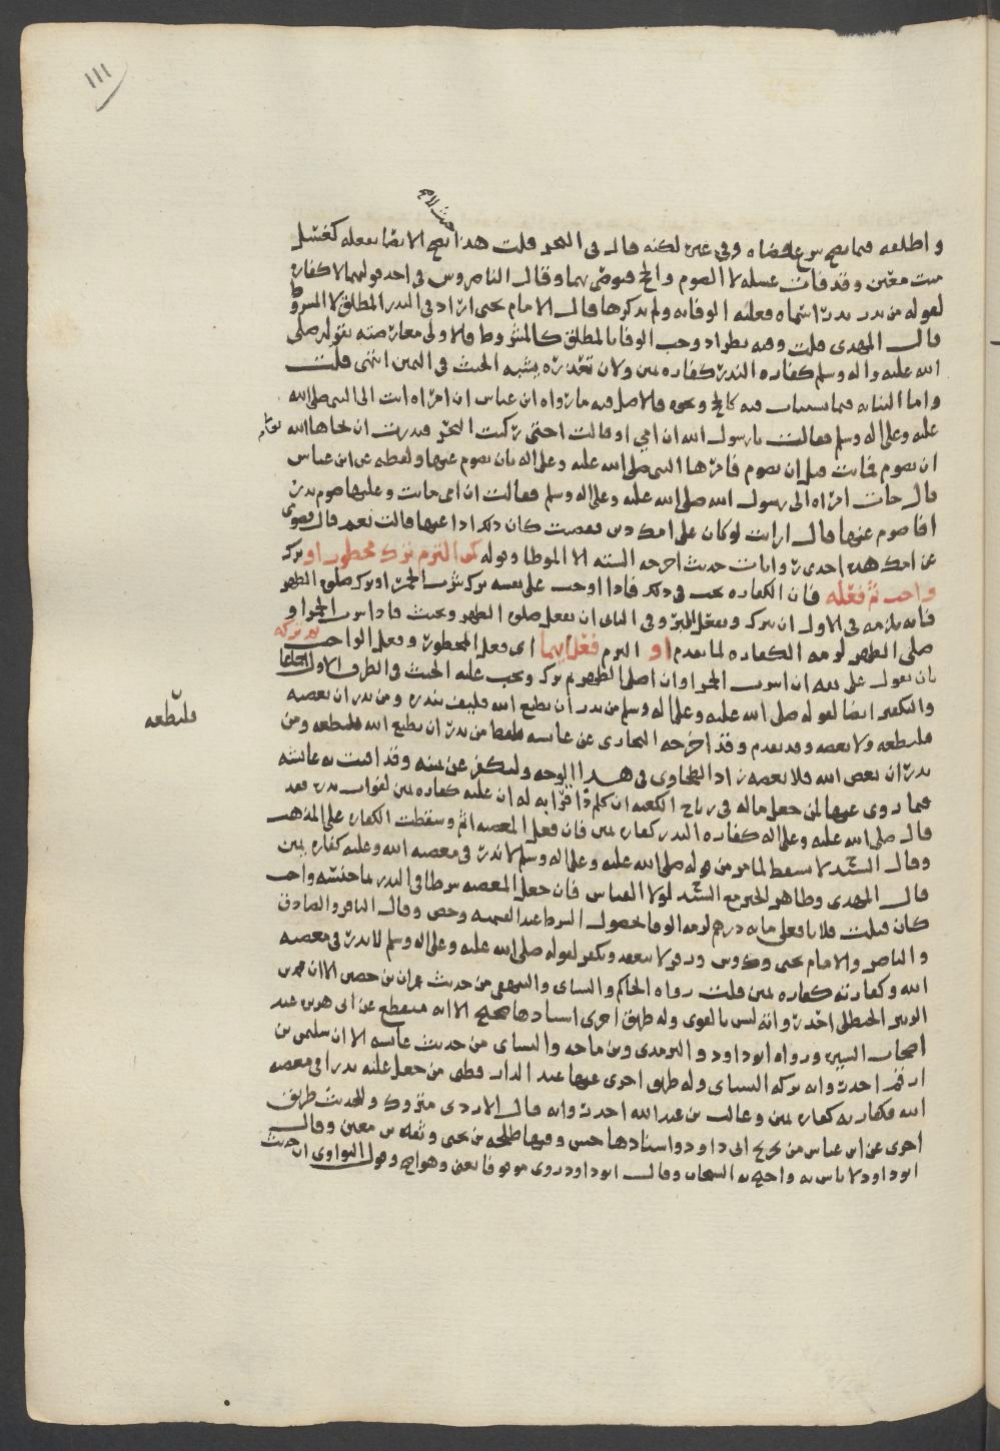 ١١١
حيث لا يصح
واطلعه فيما يصح لكنه قال في البحر قلت هذا يصح الايصا بفعله كغسل
ميت معين وقد فات غسله لا الصوم والحج فيوصي بهما وقال الناصر وش في احد قوليهما لا كفارة
لقوله من نذر نذرا سماه فعليه الوفا به ولم يذكرها قال الامام يحيى اراد في النذر المطلق لا المشروط
قال المهدي قلت وفيه نظر اذ وجب الوفا بالمطلق كالمشروط فالاولى معارضته بقوله صلى
الله عليه واله وسلم كفارة النذر كفارة يمين ولان تعذره يشبه الحنث في اليمين انتهى قلت
واما النيابة فيما فيه كالحج ونحوه فالاصل فيه ما رواه ابن عباس ان امراة اتت الى النبي صلى الله
عليه وعلى اله وسلم فقالت يا رسول الله ان امي او قالت اختي ركبت البحر فنذرت ان نجاها الله تعالى
ان تصوم فماتت قبل ان تصوم فامرها النبي صلى الله عليه وعلى اله بان تصوم عنها ولفظه عن ابن عباس
قال جات امراة الى رسول الله صلى الله عليه وعلى اله وسلم فقالت ان امي ماتت وعليها صوم نذر
افاصوم عنها قال ارايت لو كان على امك دين فقضيته كان ذلك اداعنها قالت نعم قال فصومي
عن امك هذه احدى روايات حديث اخرجه الستة الا الموطا وقوله كمن التزم ترك محظور او ترك
واجب ثم فعله فان الكفارة تجب في ذلك فاذا اوجب على نفسه ترك شرب الخمر او ترك صلوة الظهر
فانه يلزمه في الاول ان يترك وفي الثاني ان يفعل صلوة الظهر ويحنث فاذا شرب الخمر او
صلى الظهر لزمه الكفارة لما تقدم او التزم فعلهما اي فعل المحظور وفعل الواجب ثم تركه
بان يقول علي لله ان اشرب الخمر او ان اصلي الظهر ثم ترك وتجب عليه الحنث في الطرف الاول اجماعا
والتكفير ايضا لقوله صلى الله عليه وعلى اله وسلم من نذر ان يطيع الله فليف بنذره ومن نذر ان يعصيه
فليطعه ولا يعصه وقد تقدم وقد اخرجه البخاري عن عايشة بلفظ من نذر ان يطيع الله فليطعه ومن
فليطعه
نذر ان يعصي الله فلا يعصه زاد الطحاوي في هذا الوجه وليكفر عن يمينه وقد افتت به عايشة
فيما روي عنها لمن جعل ماله في رتاج الكعبة ان كلم ذا قرابة له ان عليه كفارة يمين
قال صلى الله عليه وعلى اله كفارة النذر كفارة يمين فان فعل المعصية اثم وسقطت الكفارة على المذهب
وقال السيد لا تسقط لما مر من قوله صلى الله عليه وعلى اله وسلم لا نذر في معصية الله وعليه كفارة يمين
قال المهدي وظاهر الخبر مع السيد لولا القياس فان جعل المعصية شرطا في النذر
كان قتلت فلانا فعلي ماية درهم لزمه الوفا لحصول الشرط عند وقال الباقر والصادق
والناصر والامام يحيى لا ينعقد ويكفر لقوله صلى الله عليه وعلى اله وسلم لا نذر في معصية
الله وكفارته كفارة يمين قلت رواه الحاكم والنساي والبيهقي من حديث عمران بن حصين الا ان محمد بن
الزبير الحنظلي احد رواته ليس بالقوي وله طريق اخرى اسنادها صحيح الا انه منقطع عن ابي هريرة عند
اصحاب السنن ورواه ابو داود والترمذي وبن ماجه والنساي من حديث عايشة الا ان سليمن بن
ارقم احد رواته تركه النساي وله طريق اخرى عنها عند الدار قطني من جعل عليه نذرا في معصية
الله فكفارته كفارة يمين وغالب بن عبد الله احد رواته قال الازدي متروك وللحديث طريق
اخرى عن ابن عباس من تخريج ابي داود واسنادها حسن وفيها طلحه بن يحيى وثقه بن معين وقال
ابو داود لا باس به واحتج به الشيخان وقال ابو داود روي موقوفا يعني وهو اصح وقول النواوي ان حديث